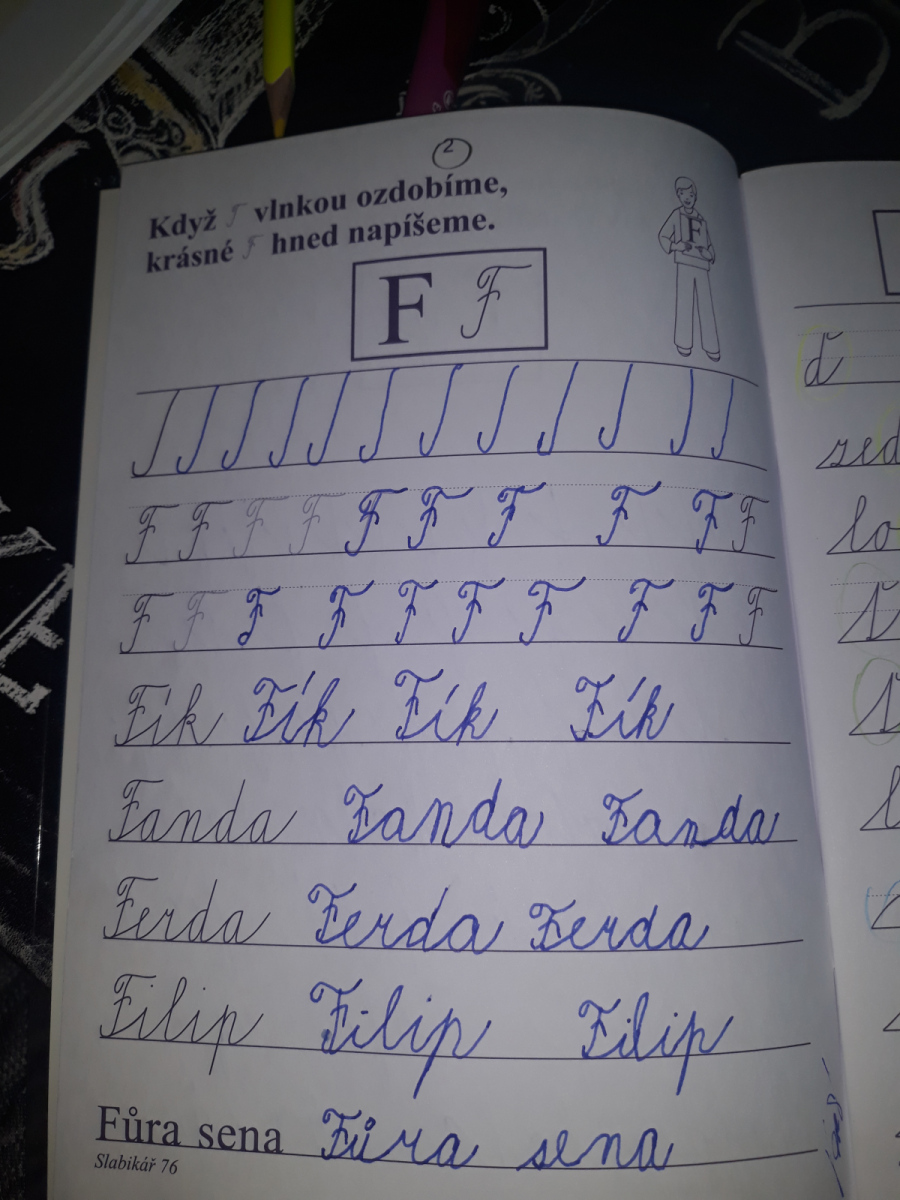 2
Když F vlnkou ozdobíme,
krásné F hned napíšeme.
F
F F
F F F F F F F F F F
F F F F F F F F F F
Fík Fík Fík Fík
Fanda Fanda Fanda
Ferda Ferda Ferda
Filip Filip Filip
Fůra sena Fůra sena
Slabikář 76
ď
sed
lo